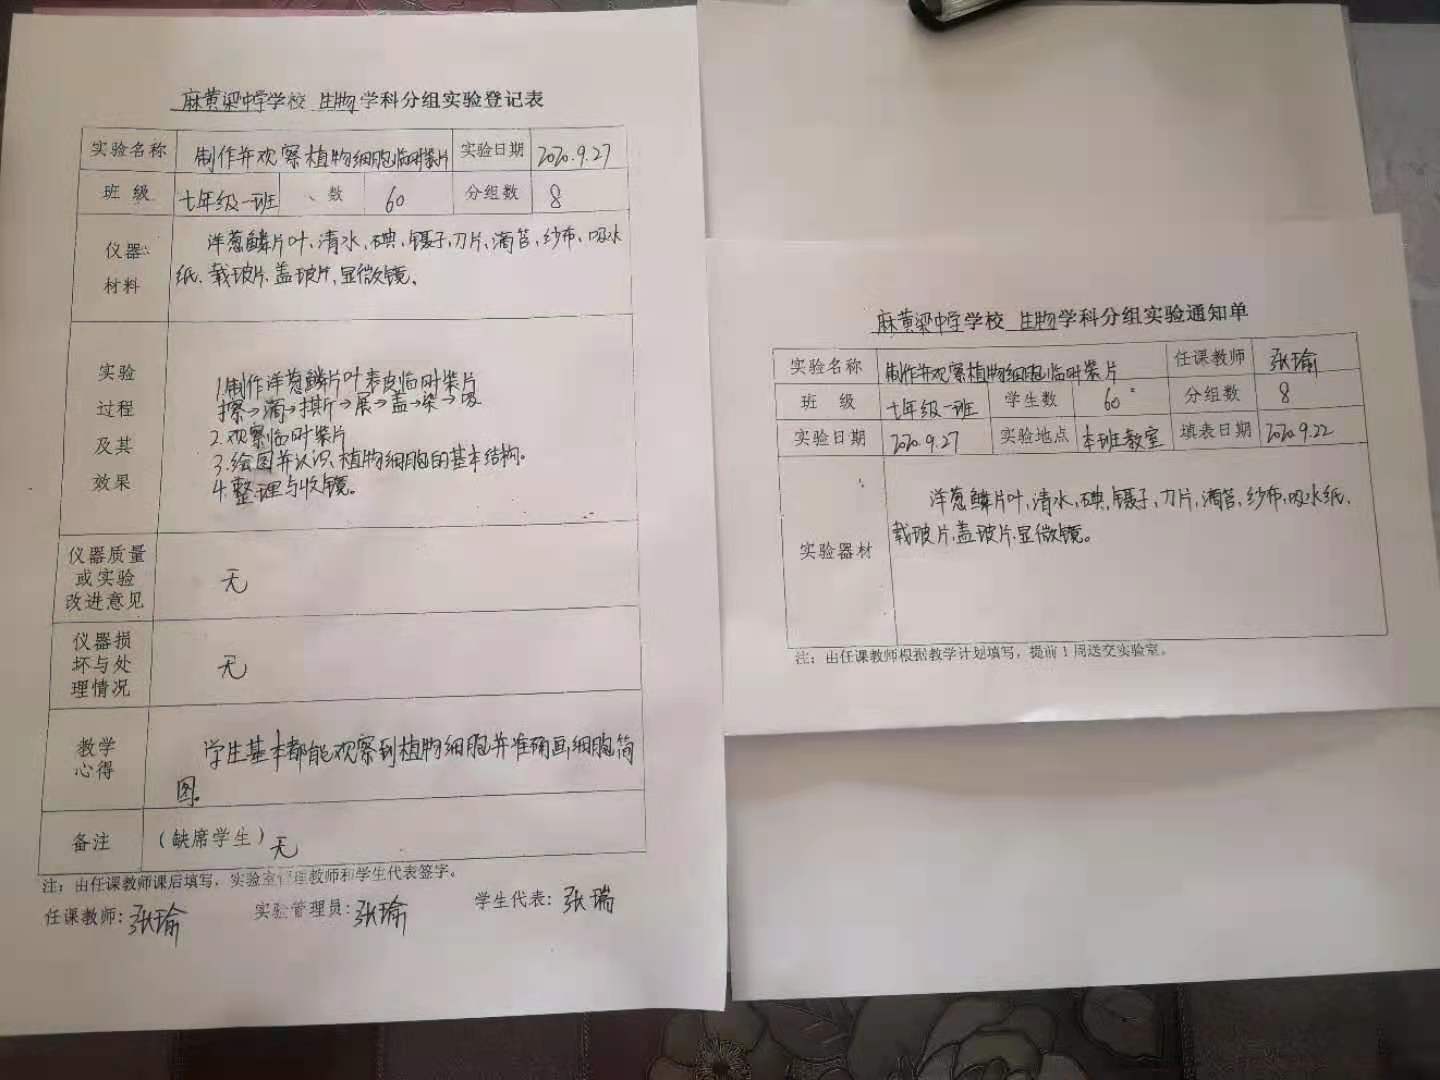 麻黄梁中学学校 生物学科分组实验登记表
实验名称 制作并观察植物细胞临时装片 实验日期 2020.9.27
班 级 七年级一班 、数 60 分组数 8
仪器
材料
洋葱鳞片叶、清水、碘、镊子、刀片、滴管、纱布、吸水
纸、载玻片、盖玻片、显微镜。
实验
过程
及其
效果
1.制作洋葱鳞片叶表皮临时装片
擦→滴→撕→展→盖→染→吸
2.观察临时装片
3.绘图并认识植物细胞的基本结构。
4.整理与收镜。
仪器质量
或实验
改进意见
无
仪器损
坏与处
理情况
无
教学
心得
学生基本都能观察到植物细胞并准确画细胞简
图。
备注 (缺席学生) 无
注:由任课教师课后填写,实验室管理教师和学生代表签字。
任课教师:张瑜 实验管理员:张瑜 学生代表:张瑞
麻黄梁中学学校 生物学科分组实验通知单
实验名称 制作并观察植物细胞临时装片 任课教师 张瑜
班 级 七年级一班 学生数 60 分组数 8
实验日期 2020.9.27 实验地点 本班教室 填表日期 2020.9.22
实验器材
洋葱鳞片叶,清水,碘,镊子,刀片,滴管,纱布,吸水纸、
载玻片、盖玻片、显微镜。
注:由任课教师根据教学计划填写,提前1周送交实验室。